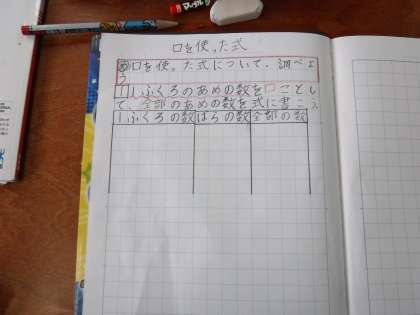 □を使った式
め □を使った式について、調べよ
う
1 1ふくろのあめの数を□ことし
て、全部のあめの数を式に書こう
1ふくろの数 ばらの数 全部の数